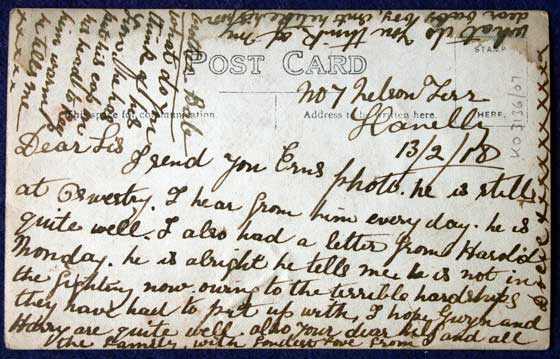 POST CARD
This space for communication.
Address to be written here.
STAMP
HERE.
No 7 Nelson Terr
Llanelly
13/2/18
Dear Sis
I send you Erns photo. he is still
at Oswestry. I hear from him every day. he is
quite well. I also had a letter from Harold
Monday. he is alright he tells me he is not in
the fighting now. owing to the terrible hardships
they have had to put up with, I hope Gwyn and
Harry are quite well. also your dear
the Family, with fondest Love from I and all
what do you
think of his
his cap on
his head
him
he tells me
what do you think of my
dear baby boy, isnt he like his